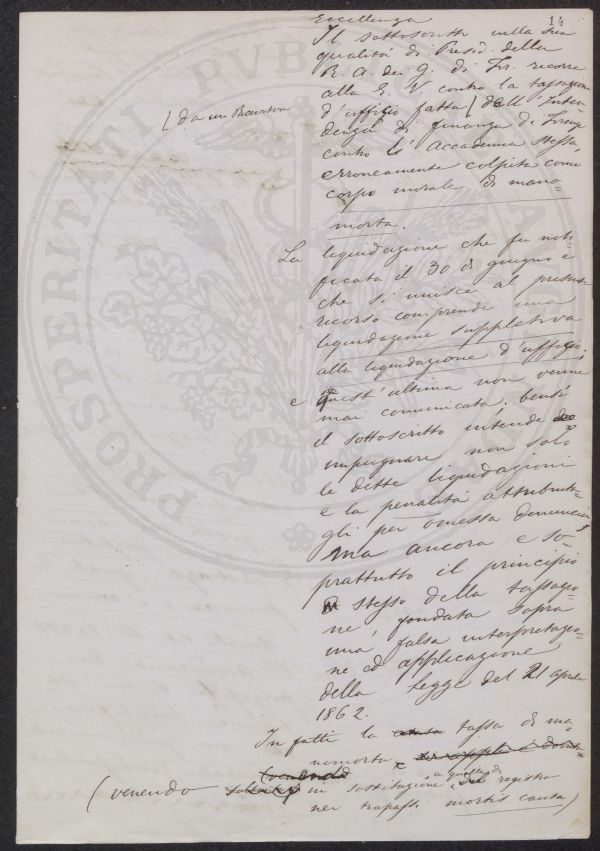 14
Eccellenza
Il sottoscritto nella sua
qualità di Presid. della
R. A. dei G. di Fir. ricorre
alla E. V. contro la tassazione
[ da un Ricevitore
d'uffizio fatta [ dall'Inten
denza di finanza di Firenze
contro l'Accademia stessa
erroneamente colpita come
corpo morale di mano=
morta.
La liquidazione che fu noti
ficata il 30 di giugno e
che si unisce al presente
ricorso comprende una
liquidazione suppletiva
alla liquidazione d'uffizio;
e quest'ultima non venne
mai comunicata; bensì
il sottoscritto intende
impugnare non solo
le dette liquidazioni
e la penalità attribuita=
gli per omessa denuncia,
ma ancora e so=
prattutto il principio
stesso della tassazio=
ne fondata sopra
una falsa interpretazio=
ne ed applicazione
della legge del 21 aprile
1862.
In fatti la tassa di ma
nomorta
(venendo
( venendo in sostituzione a quella di registro
nei trapassi mortis causa )
PROSPERITATI PVBLICAE